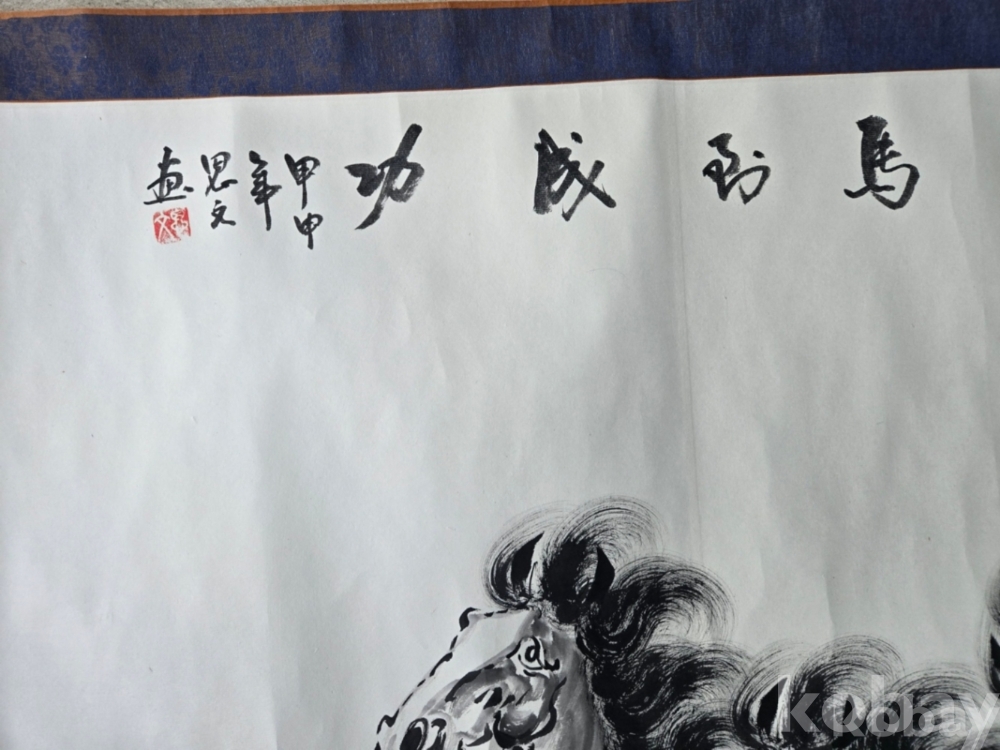 馬到成功
甲申
年
思文
画
kobay